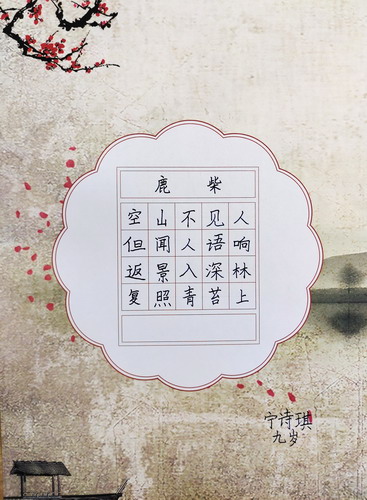 鹿柴
空山不见人
但闻人语响
返景入深林
复照青苔上
宁诗琪
九岁